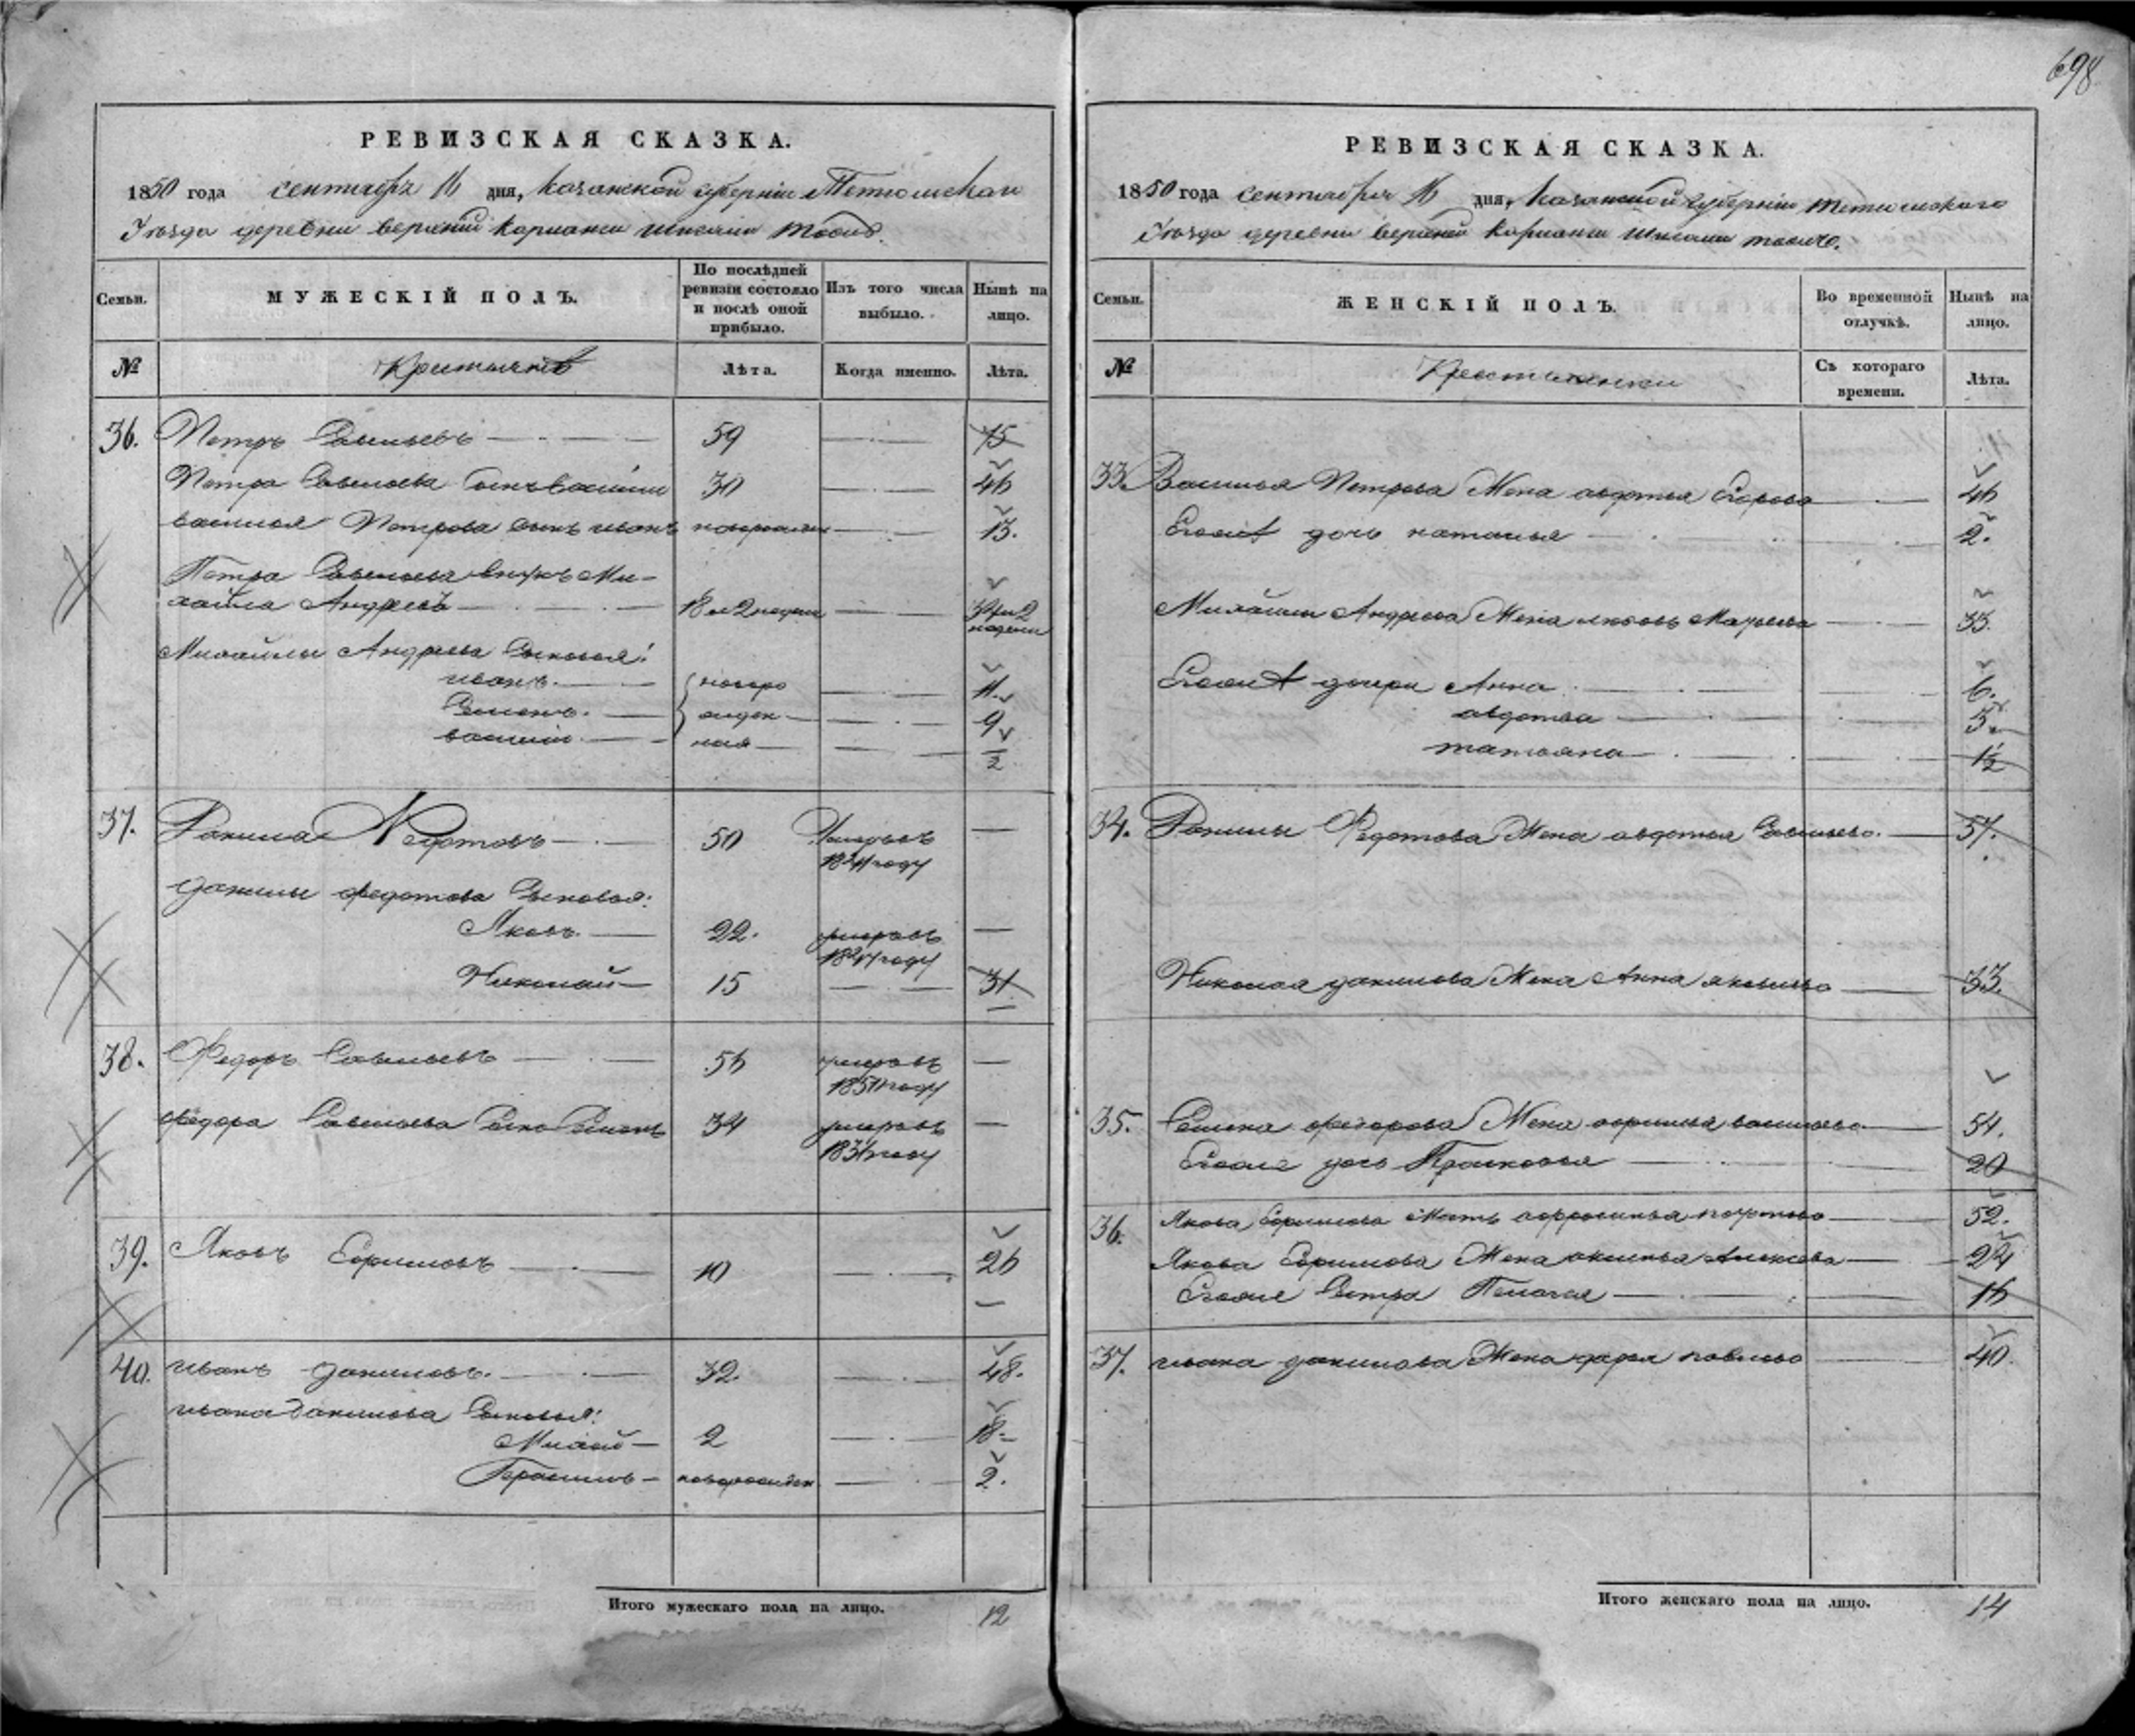 698
РЕВИЗСКАЯ СКАЗКА.
1850 года сентября 16 дня, Казанской губернии Тетюшскаго
Уезда деревни верхний
Семьи.
МУЖЕСКІЙ ПОЛЪ.
По послѣдней ревизіи состояло и послѣ оной прибыло.
Изъ того числа выбыло.
Нынѣ на лицо.
№
Лѣта.
Когда именно.
Лѣта.
36. Петръ Савельевъ 59 75
Петра Савельева сынъ василий 30 46
василья Петрова сынъ иванъ новорожден 15.
Петра Савельева внукъ Ми-
хайла Андреевъ 18 и 2 недели 34 и 2 недели
Михайлы Андреева сыновья:
иванъ. 11.
Семенъ. новорожденная 9
василий. 1/2
37. Данила Федотовъ 50 умеръ въ 1841 году —
данилы федотова сыновья:
Яковъ 22. умеръ въ 1841 году —
Николай 15 31
38. Федоръ Савельевъ 56 умеръ въ 1850 году —
федора Савельева сынъ Семенъ 34 умеръ въ —
39. Яковъ Ефимовъ 10 26
40. иванъ даниловъ. 32. 48.
ивана данилова сыновья:
2 18.
новорожден 2.
Итого мужескаго пола на лицо. 12
РЕВИЗСКАЯ СКАЗКА.
1850 года сентября 16 дня, Казанской губернии тетюшскаго
Уезда деревни верхней
Семьи.
ЖЕНСКІЙ ПОЛЪ.
Во временной отлучкѣ.
Нынѣ на лицо.
№
Крестьянки
Съ котораго времени.
Лѣта.
33. Василья Петрова Жена авдотья Егорова 46
дочь наталья 2.
Михайлы Андреева Жена любовь 35.
дочери Анна 6.
авдотья 5.
татьяна 1 1/2
34. Данилы Федотова Жена авдотья Савельева. 57.
Николая данилова Жена Анна яковлева 33.
35. Семена федорова Жена васильева 54.
дочь Прасковья 20
36. Якова Ефимова Мать 52.
Якова Ефимова Жена Алексеева 24
Сестра Пелагея 16
37. ивана данилова Жена дарья павлова 40.
Итого женскаго пола на лицо. 14